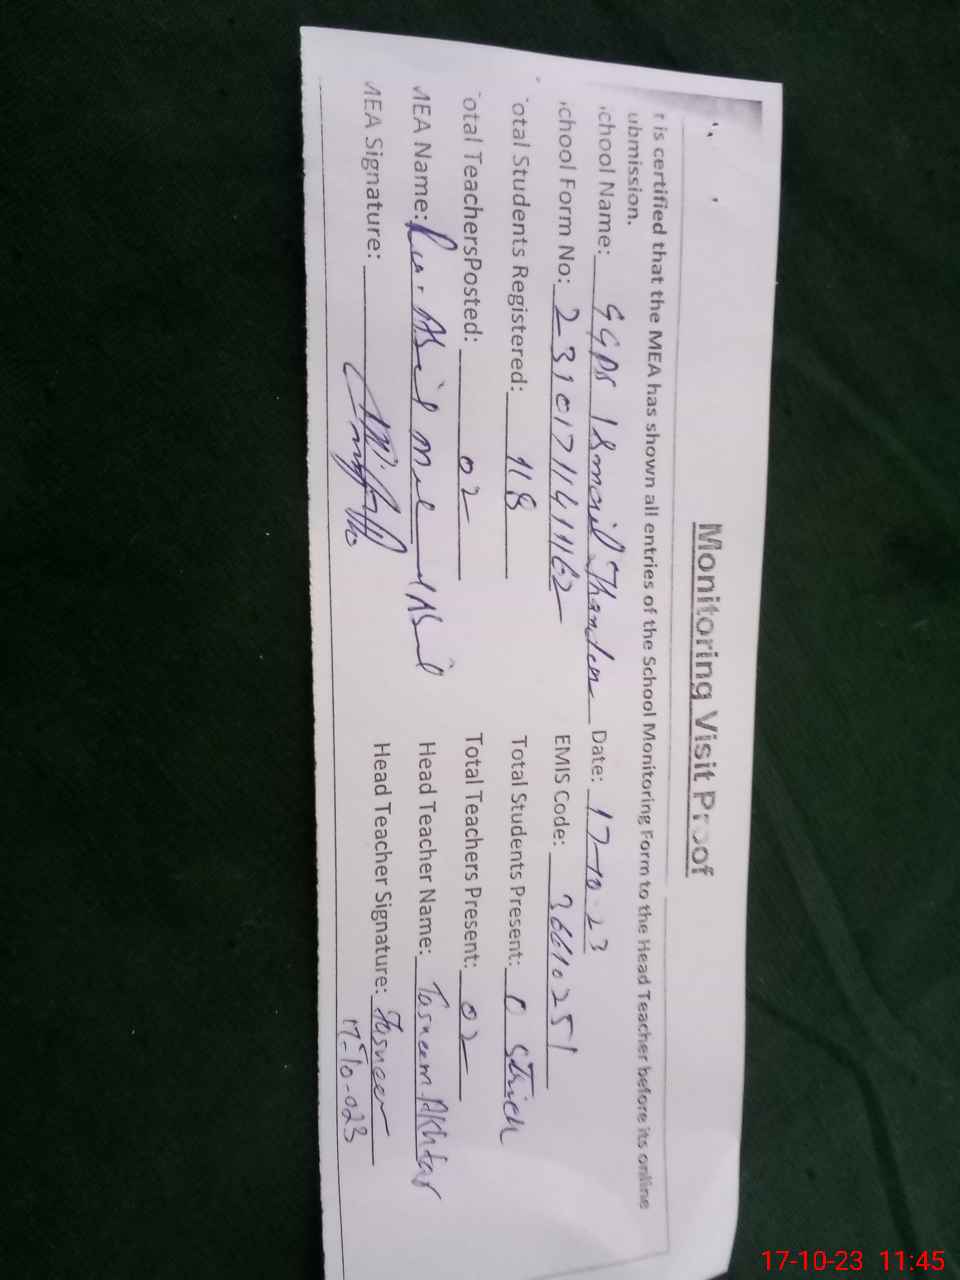 Monitoring Visit Proof
r is certified that the MEA has shown all entries of the School Monitoring Form to the Head Teacher before its online
ubmission.
chool Name: GGPS Ismail Thandan Date: 17-10-23
chool Form No: 2310171141162 EMIS Code: 36610251
otal Students Registered: 118 Total Students Present: 0
otal TeachersPosted: 02 Total Teachers Present: 02
MEA Name: Head Teacher Name: Tasneem Akhtar
MEA Signature: Head Teacher Signature: Tasneem
17-10-023
17-10-23 11:45